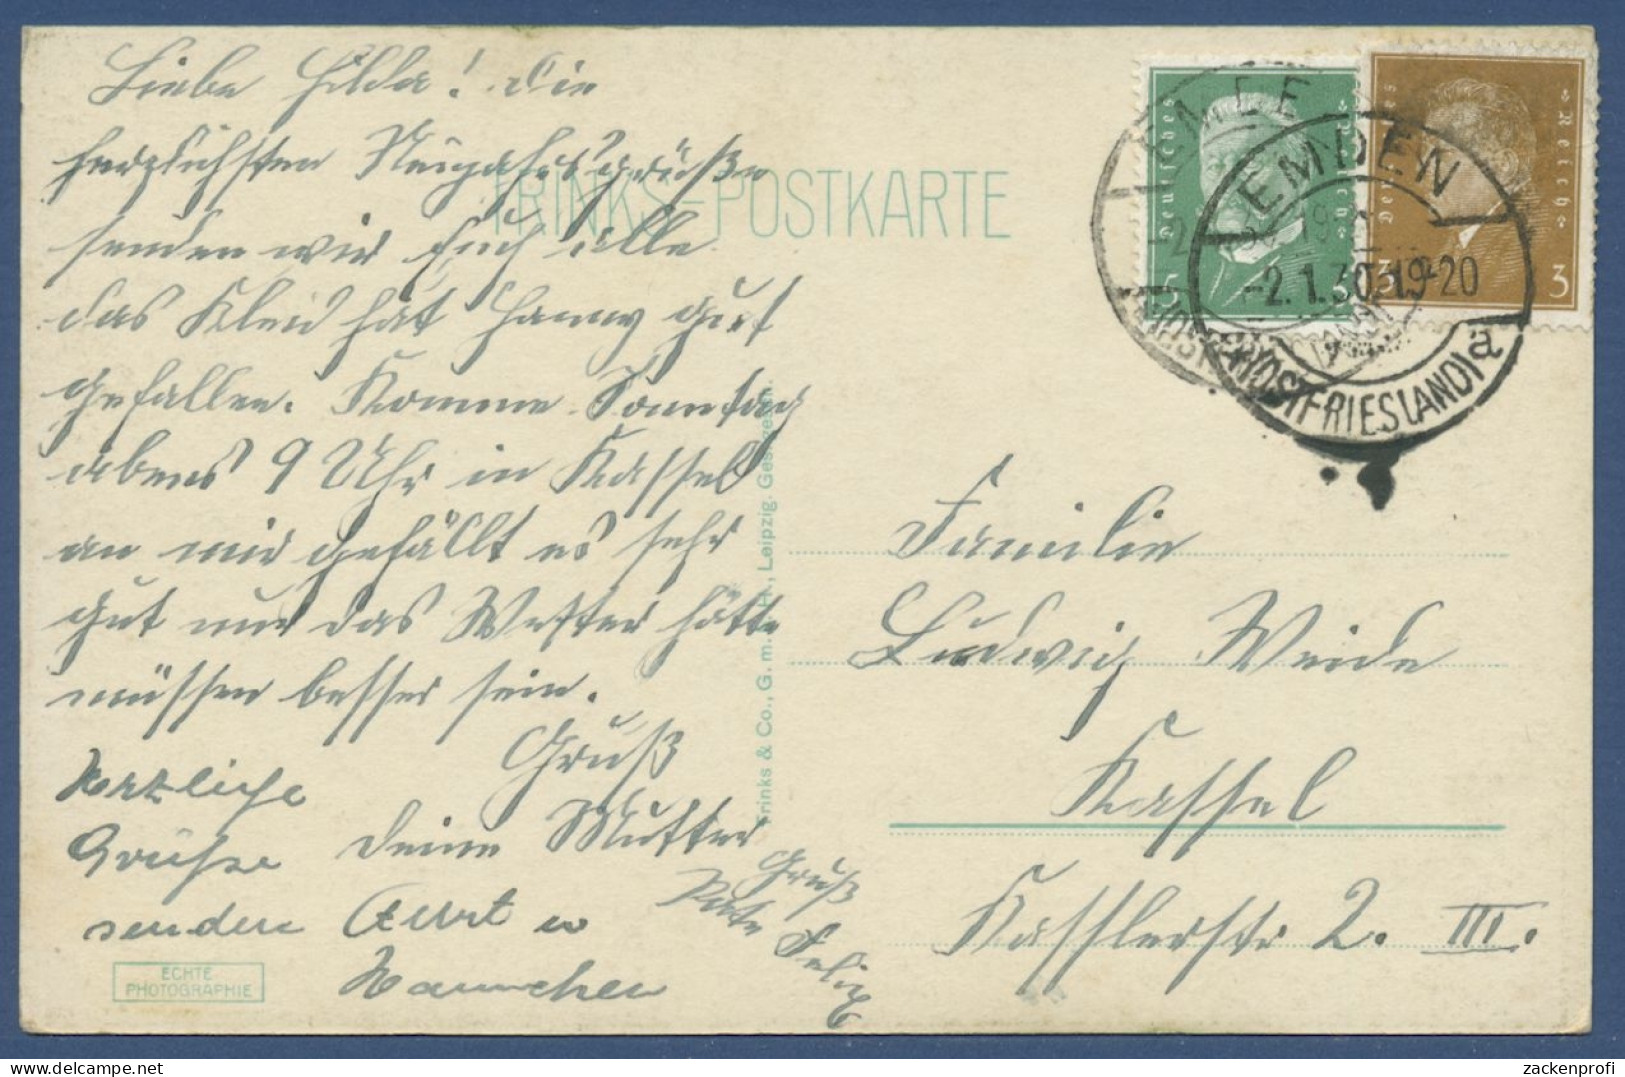 Liebe Hilda! Die
herzlichsten Neujahrsgrüße
senden wir Euch alle
das Kleid hat Hanny gut
gefallen. Komme Sonntag
abens 9 Uhr in Kassel
an mir gefällt es sehr
gut nur das Wetter hätte
müssen besser sein.
Gruß
Deine Mutter
Herzliche
Grüße
senden
Kurt u
Hannchen
Gruß
Felix
ECHTE
PHOTOGRAPHIE
TRINKS-POSTKARTE
Trinks & Co., G. m. b. H., Leipzig. Ges. gesch.
Deutsches Reich
5
Deutsches Reich
3 3
EMDEN
-2.1.30.19-20
(OSTFRIESLAND) a
Familie
Ludwig Weide
Kassel
Kasslerstr 2. III.
zackenprofi